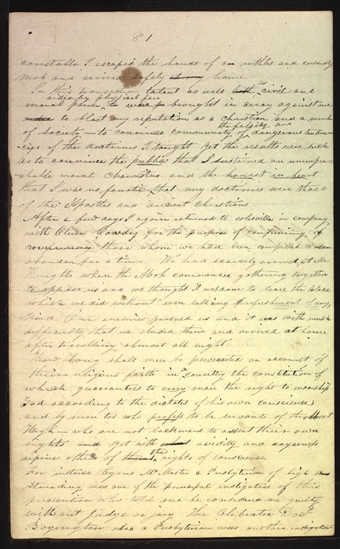 81
constable I escaped the hands of a ruthless and cowardly
mob and arived safely at my home.
In this transaction talent as well as civil and
aided by physical force
moral power, to was brought in array against me
to blast my reputation as a Christian and a member
of Society— to convince community the falsity and dangerous tenden
cies of the doctrines I taught yet the results were such
as to convince the public that I sustained an unimpea
chable moral character and the honest in fact
that I was no fanatic, that my doctrines were those
of the Apostles and ancient Christians
After a few days I again returned to Colesville in company
with Oliver Cowdry for the purpose of confirming
those whom we had been compelled to
abandon for a time. We had scarcely arrived at Mr
Knights when the Mob commenced gathering together
to oppose us and we thought it wisdom to leave the place
which we did without even taking refreshment of any
kind. Our enemies pursued us and it was with much
difficulty that we eluded them and arived at home
after traveling almost all night.
How long shall men be persecuted on account of
their religious faith in a country the constitution of
which guarantees to every man the right to worship
God according to the dictates of his own conscience
and by men too who profess to be servants of the Most
High— who are not backward to assert their own
rights and yet with avidity and eagerness
deprive others of the rights of conscience
For instance Cyrus Mc Master a Presbyterian of high
Standing was one of the principal instigators of this
persecution who told me he considered me guilty
without judge or jury The Celebrated Doct
Boyington also a Presbyterian was another instigator